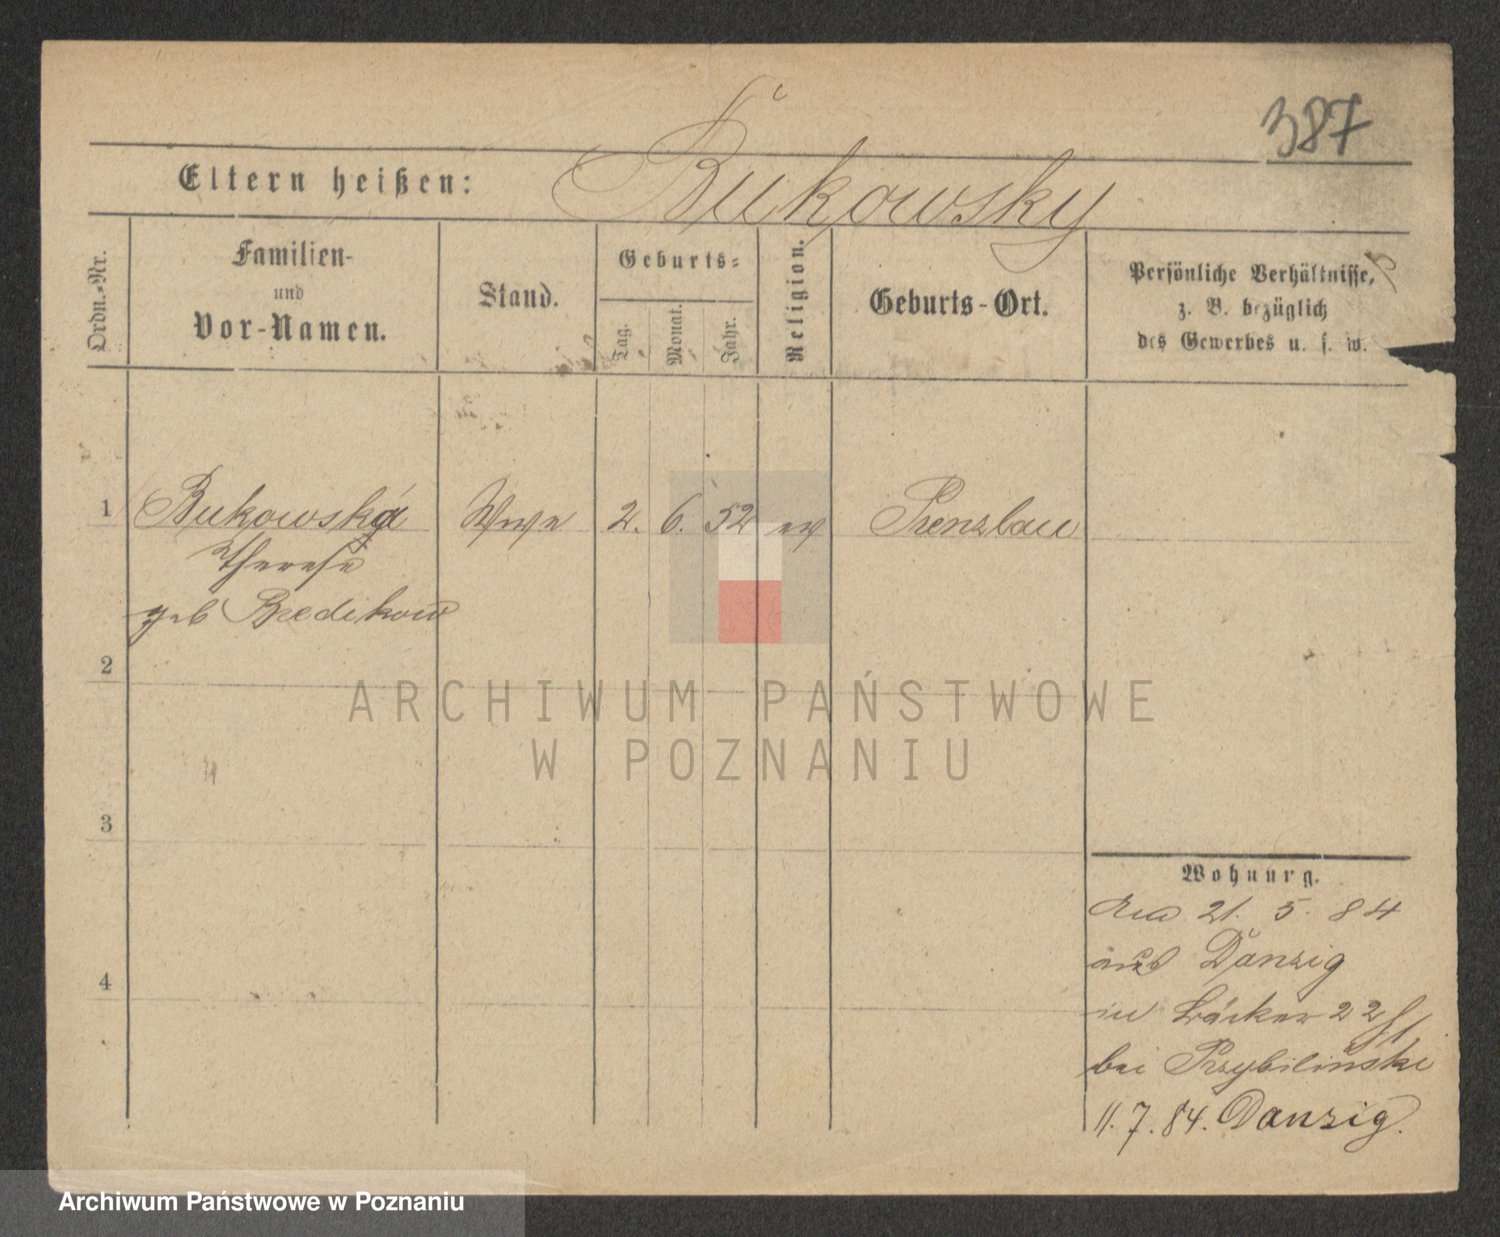 387
Eltern heißen: Bukowsky
Ordn.-Nr.
Familien-
und
Vor-Namen.
Stand.
Geburts-
Tag.
Monat.
Jahr.
Religion.
Geburts-Ort.
Persönliche Verhältnisse,
z. B. bezüglich
des Gewerbes u. s. w.
1 Bukowska Wwe 2. 6. 52 ev Prenzlau
Therese
geb Bredikow
2
ARCHIWUM PAŃSTWOWE
W POZNANIU
3
Wohnung.
21. 5. 84
aus Danzig
in Bäcker 22
bei Przybilinski
4
11. 7. 84. Danzig.
Archiwum Państwowe w Poznaniu